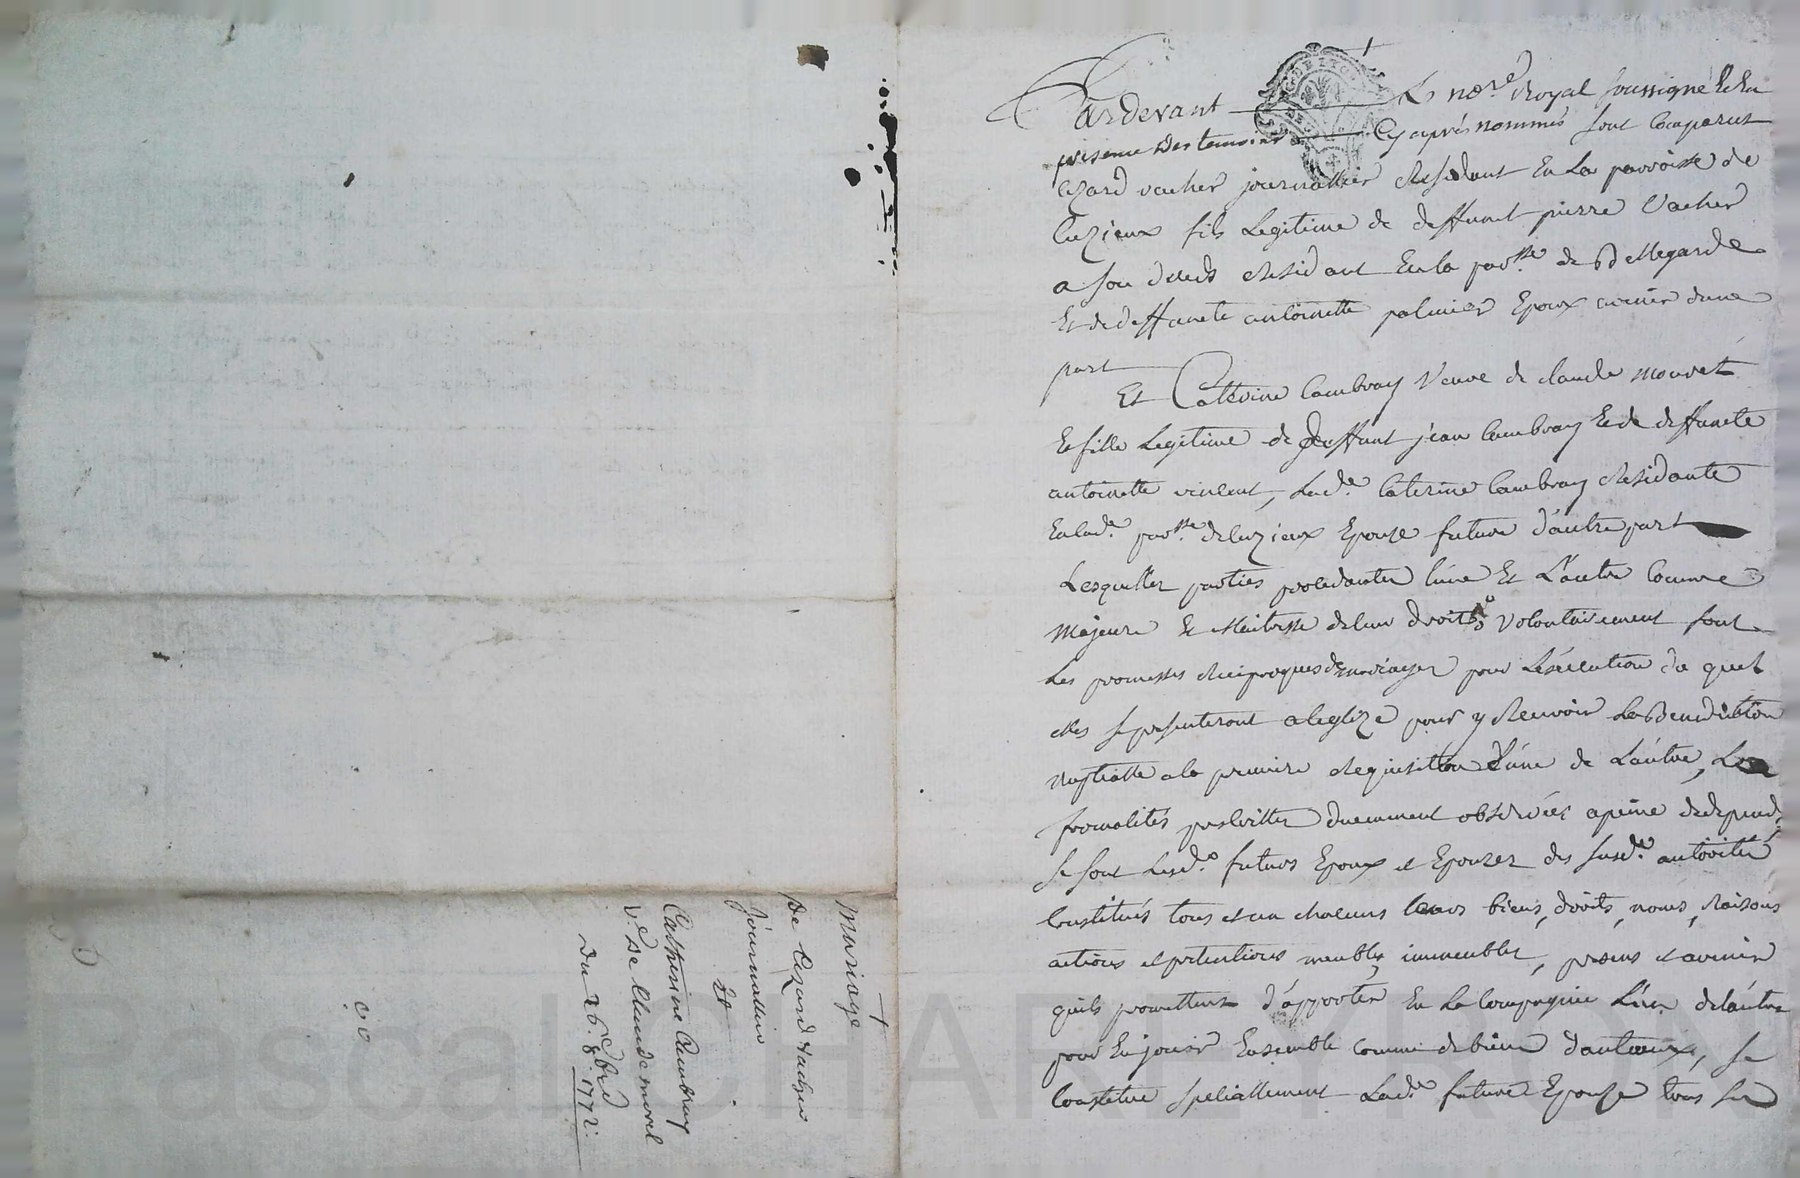 Mariage
De Cezard Vacher
journallier
&
Catherine Cambray
v.e De Claude morel
du 26.e 8bre 1772.
Pardevant Le no.re Royal soussigné & En
presence des temoins Cy après nommés sont Comparut
Cezard vacher journallier Residant En La parroisse de
Cuzieux fils Legitime de deffunt pierre Vacher
a son deceds Residant En la par.sse de Bellegarde
Et de deffuncte antoinette palmier Epoux avenir dune
part
Et Caterine Cambray Veuve de claude mouret
& fille Legitime de deffunt jean Cambray & de deffuncte
antoinette vincent, Lad.e Caterine Cambray Residante
En lad.e par.sse de Cuzieux Epouze future d'autre part
Lesquelles parties procedantes l'une Et L'autre Comme
Majeure Et Maitresse de leur droits volontairement font
Les promesses Reciproques de mariage pour L'execution de quel
elles se presenteront a leglize pour y Recevoir La Benediction
nuptialle a la premiere Requisition L'une de L'autre, Les
formalités prescrittes duement observées a peine de depend
se sont Lesd.s futurs Epoux et Epouzes des susd.es autorités
Constitués tous et un chacuns leurs biens, droits, noms, Raisons
actions et pretentions meubles, immeubles, presens et avenir
quils promettent d'apporter En La Compagnie L'un de l'autre
pour En jouir Ensemble comme de biens dantreux, se
Constitue speciallement Lad.e future Epouse tous ses
Pascal CHAREYRON